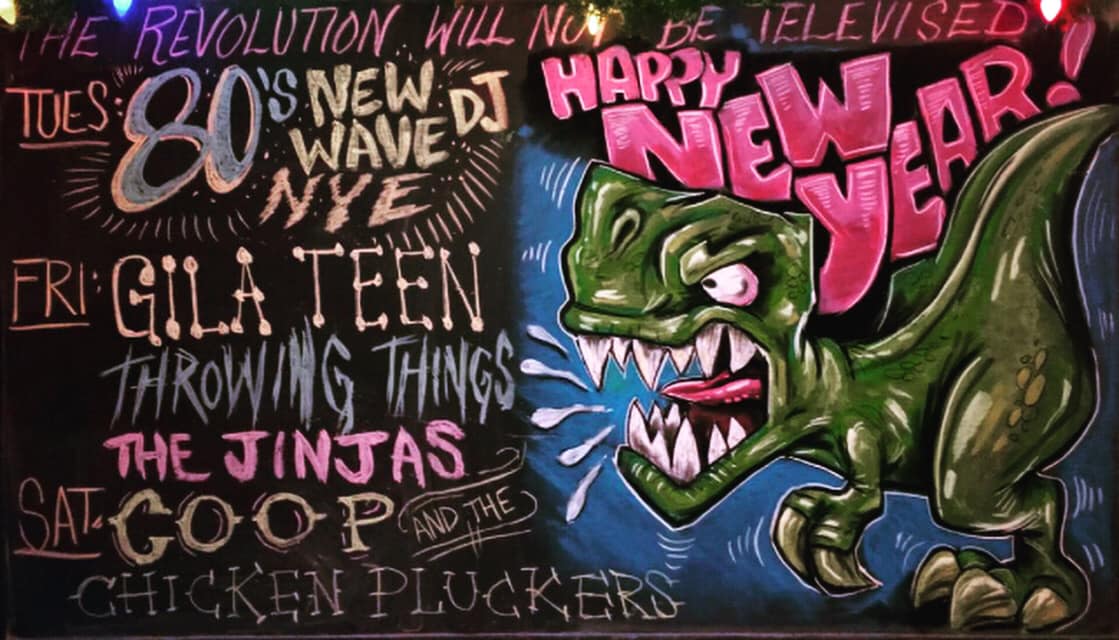 THE REVOLUTION WILL NOT BE TELEVISED
TUES: 80'S NEW WAVE DJ
NYE
FRI: GILA TEEN
THROWING THINGS
THE JINJAS
SAT: COOP AND THE
CHICKEN PLUCKERS
HAPPY
NEW
YEAR!